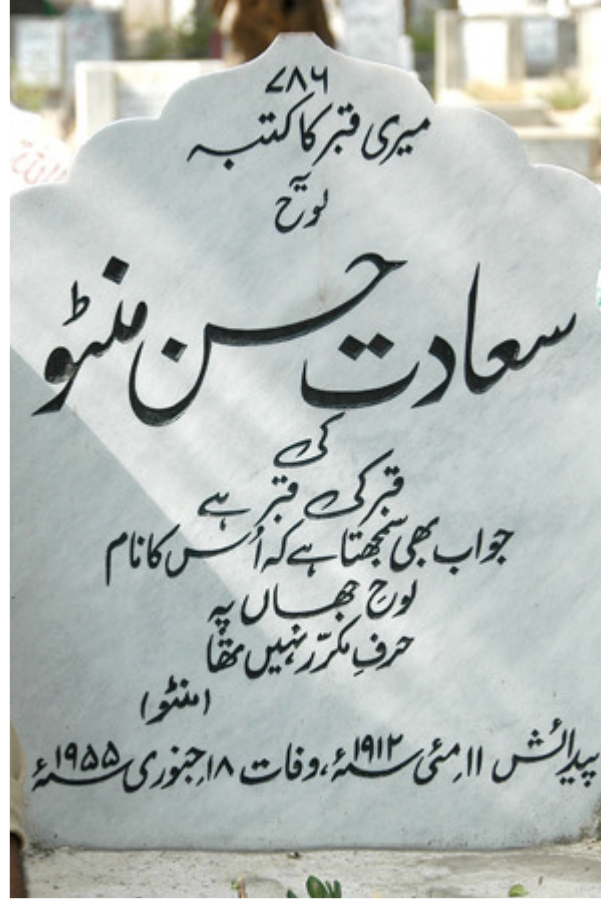 ۷۸۶
میری قبر کا کتبہ
لوح
سعادت حسن منٹو
کی
قبر کی قبر ہے
جو اب بھی سمجھتا ہے کہ اُس کا نام
لوحِ جہاں پہ
حرفِ مکرّر نہیں تھا
(منٹو)
پیدائش ۱۱ مئی سنہ ۱۹۱۲ء، وفات ۱۸ جنوری سنہ ۱۹۵۵ء